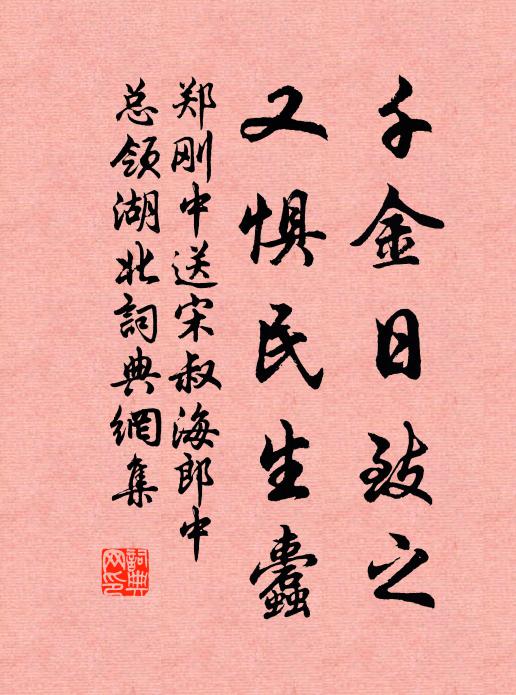 千金日致之
又惧民生蠹
郑刚中送宋叔海郎中
总领湖北詞典網集
詞典
网印